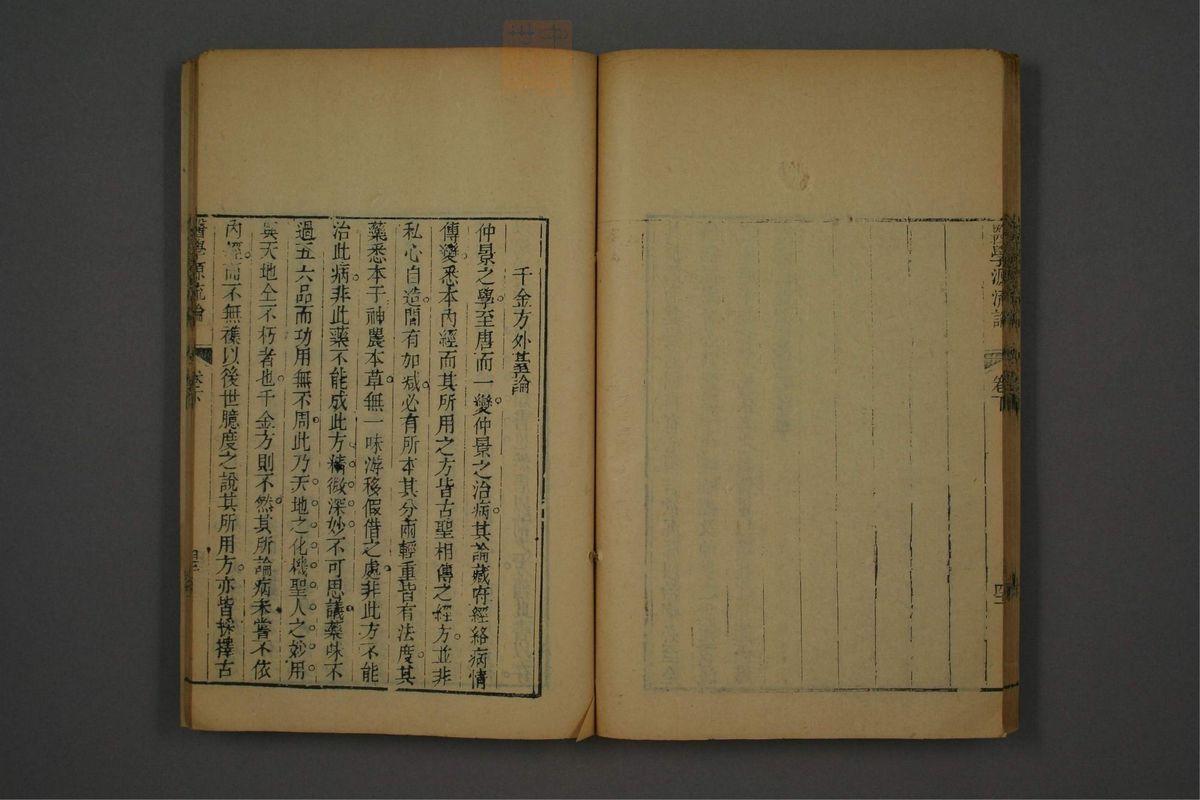 醫學源流論
卷下
千金方外臺論
仲景之學至唐而一變仲景之治病其論藏府經絡病情
傳變悉本內經而其所用之方皆古聖相傳之經方並非
私心自造間有加减必有所本其分兩輕重皆有法度其
藥悉本于神農本草無一味游移假借之處非此方不能
治此病非此藥不能成此方精微深妙不可思議藥味不
過五六品而功用無不周此乃天地之化機聖人之妙用
與天地仝不朽者也千金方則不然其所論病未嘗不依
內經而不無襍以後世臆度之說其所用方亦皆採擇古
醫學源流論
卷下